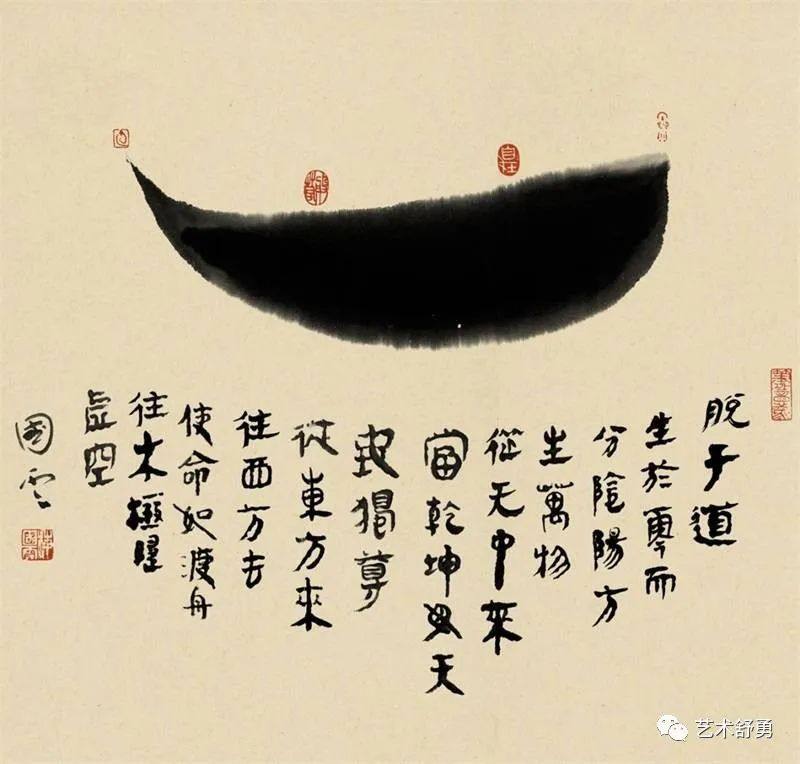 自在
脫子道
生於零而
分陰陽方
生萬物
從无中來
當乾坤天
獨尊
從東方來
往西方去
使命如渡舟
往木極
虛空
國雲
艺术舒勇